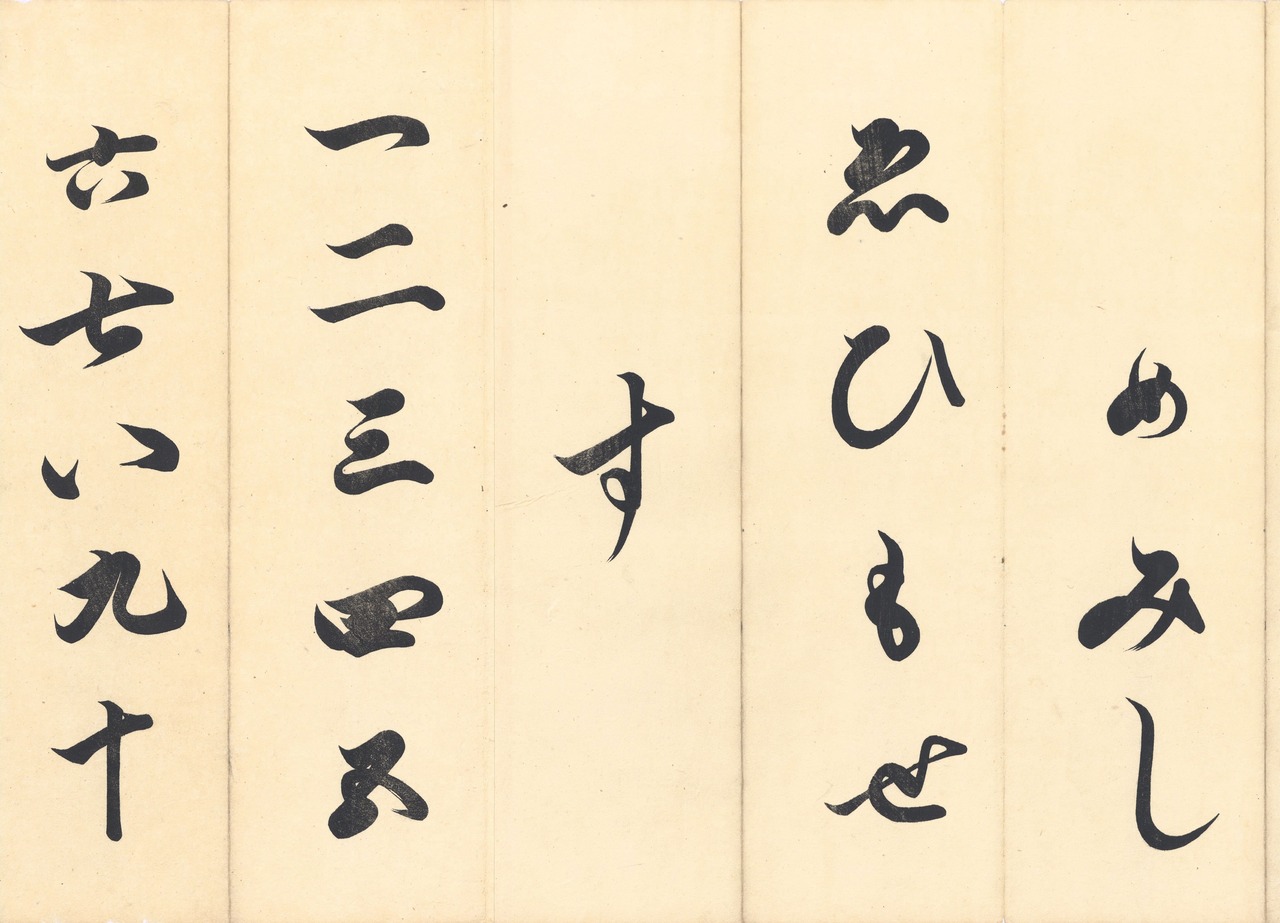 めみし
ゑひもせ
す
一二三四五
六七八九十